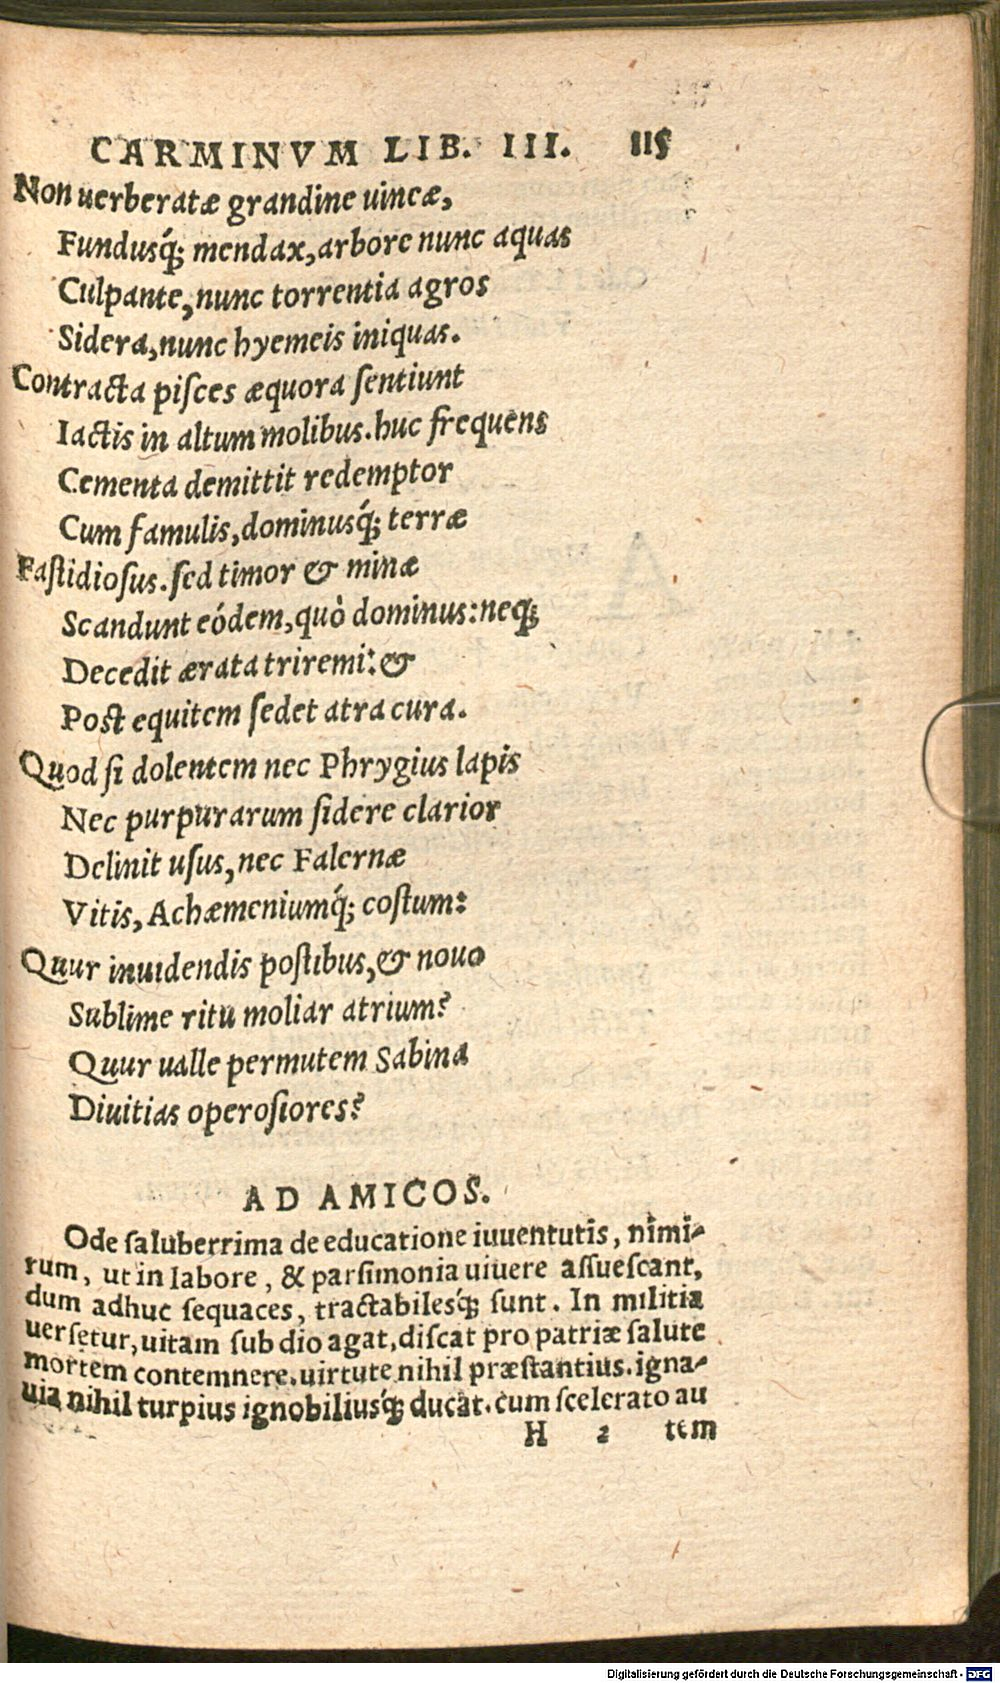 CARMINVM LIB. III. 115
Non uerberatæ grandine uineæ,
Fundusq́; mendax, arbore nunc aquas
Culpante, nunc torrentia agros
Sidera, nunc hyemeis iniquas.
Contracta pisces æquora sentiunt
Iactis in altum molibus. huc frequens
Cementa demittit redemptor
Cum famulis, dominusq́; terræ
Fastidiosus. sed timor & minæ
Scandunt eódem, quò dominus: neq;
Decedit ærata triremi: &
Post equitem sedet atra cura.
Quod si dolentem nec Phrygius lapis
Nec purpurarum sidere clarior
Delinit usus, nec Falernæ
Vitis, Achæmeniumq́; costum:
Quur inuidendis postibus, & nouo
Sublime ritu moliar atrium?
Quur ualle permutem Sabina
Diuitias operosiores?
AD AMICOS.
Ode saluberrima de educatione iuuentutis, nimi-
rum, ut in labore, & parsimonia uiuere assuescant,
dum adhuc sequaces, tractabilesq́; sunt. In militia
uersetur, uitam sub dio agat, discat pro patriæ salute
mortem contemnere. uirtute nihil præstantius. igna-
uia nihil turpius ignobiliusq́; ducat. cum scelerato au
H 2 tem
Digitalisierung gefördert durch die Deutsche Forschungsgemeinschaft - DFG